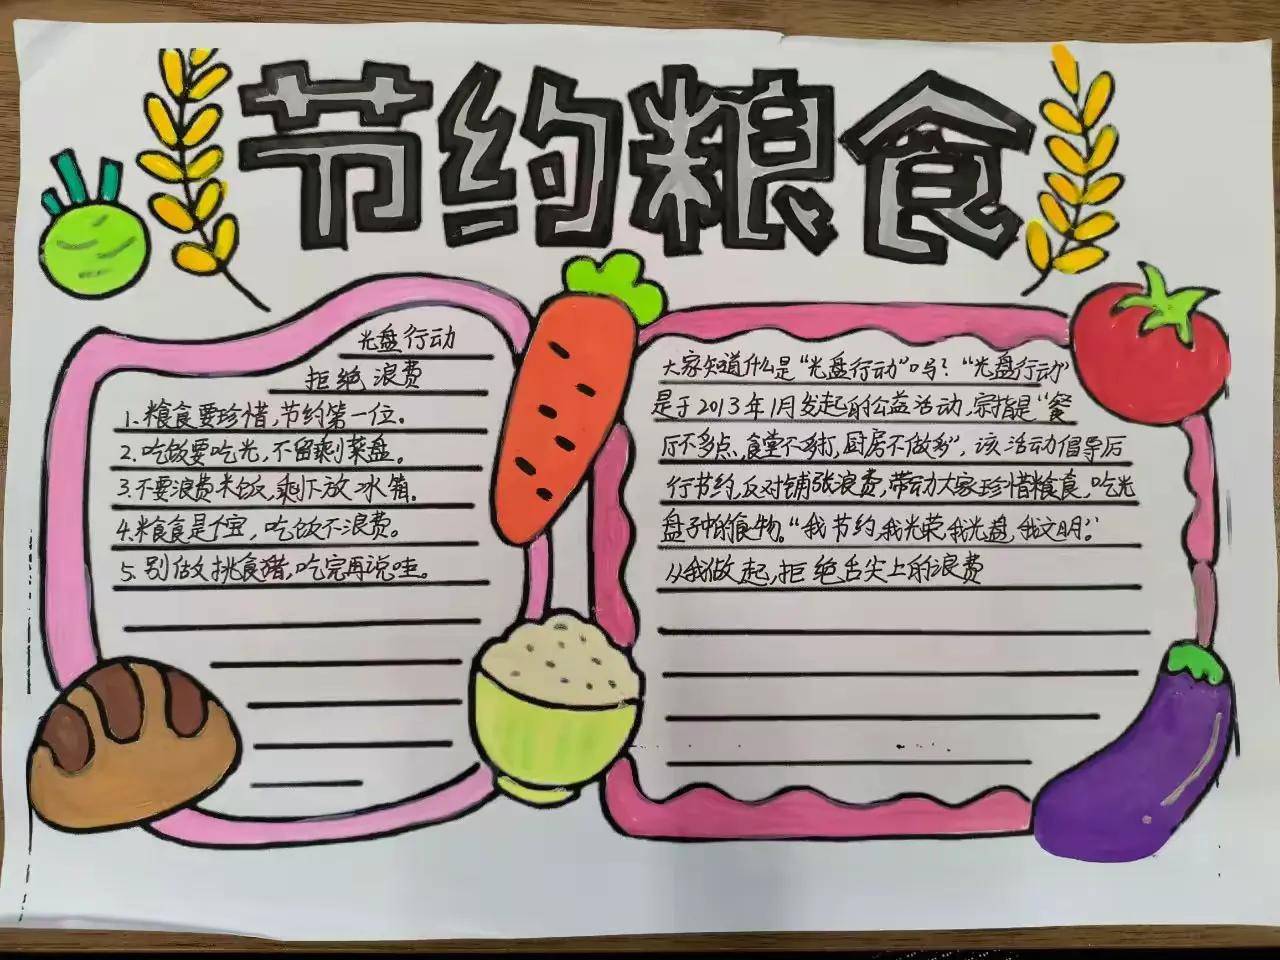 节约粮食
光盘行动
拒绝浪费
1.粮食要珍惜,节约第一位。
2.吃饭要吃光,不留剩菜盘。
3.不要浪费米饭,剩下放冰箱。
4.粮食是个宝,吃饭不浪费。
5.别做挑食猪,吃完再说哇。
大家知道什么是“光盘行动”吗?“光盘行动”
是于2013年1月发起的公益活动,宗指是“餐
厅不多点,食堂不多打,厨房不做多”,该活动倡导厉
行节约,反对铺张浪费,带动大家珍惜粮食,吃光
盘子中的食物。“我节约,我光荣,我光盘,我文明”。
从我做起,拒绝舌尖上的浪费